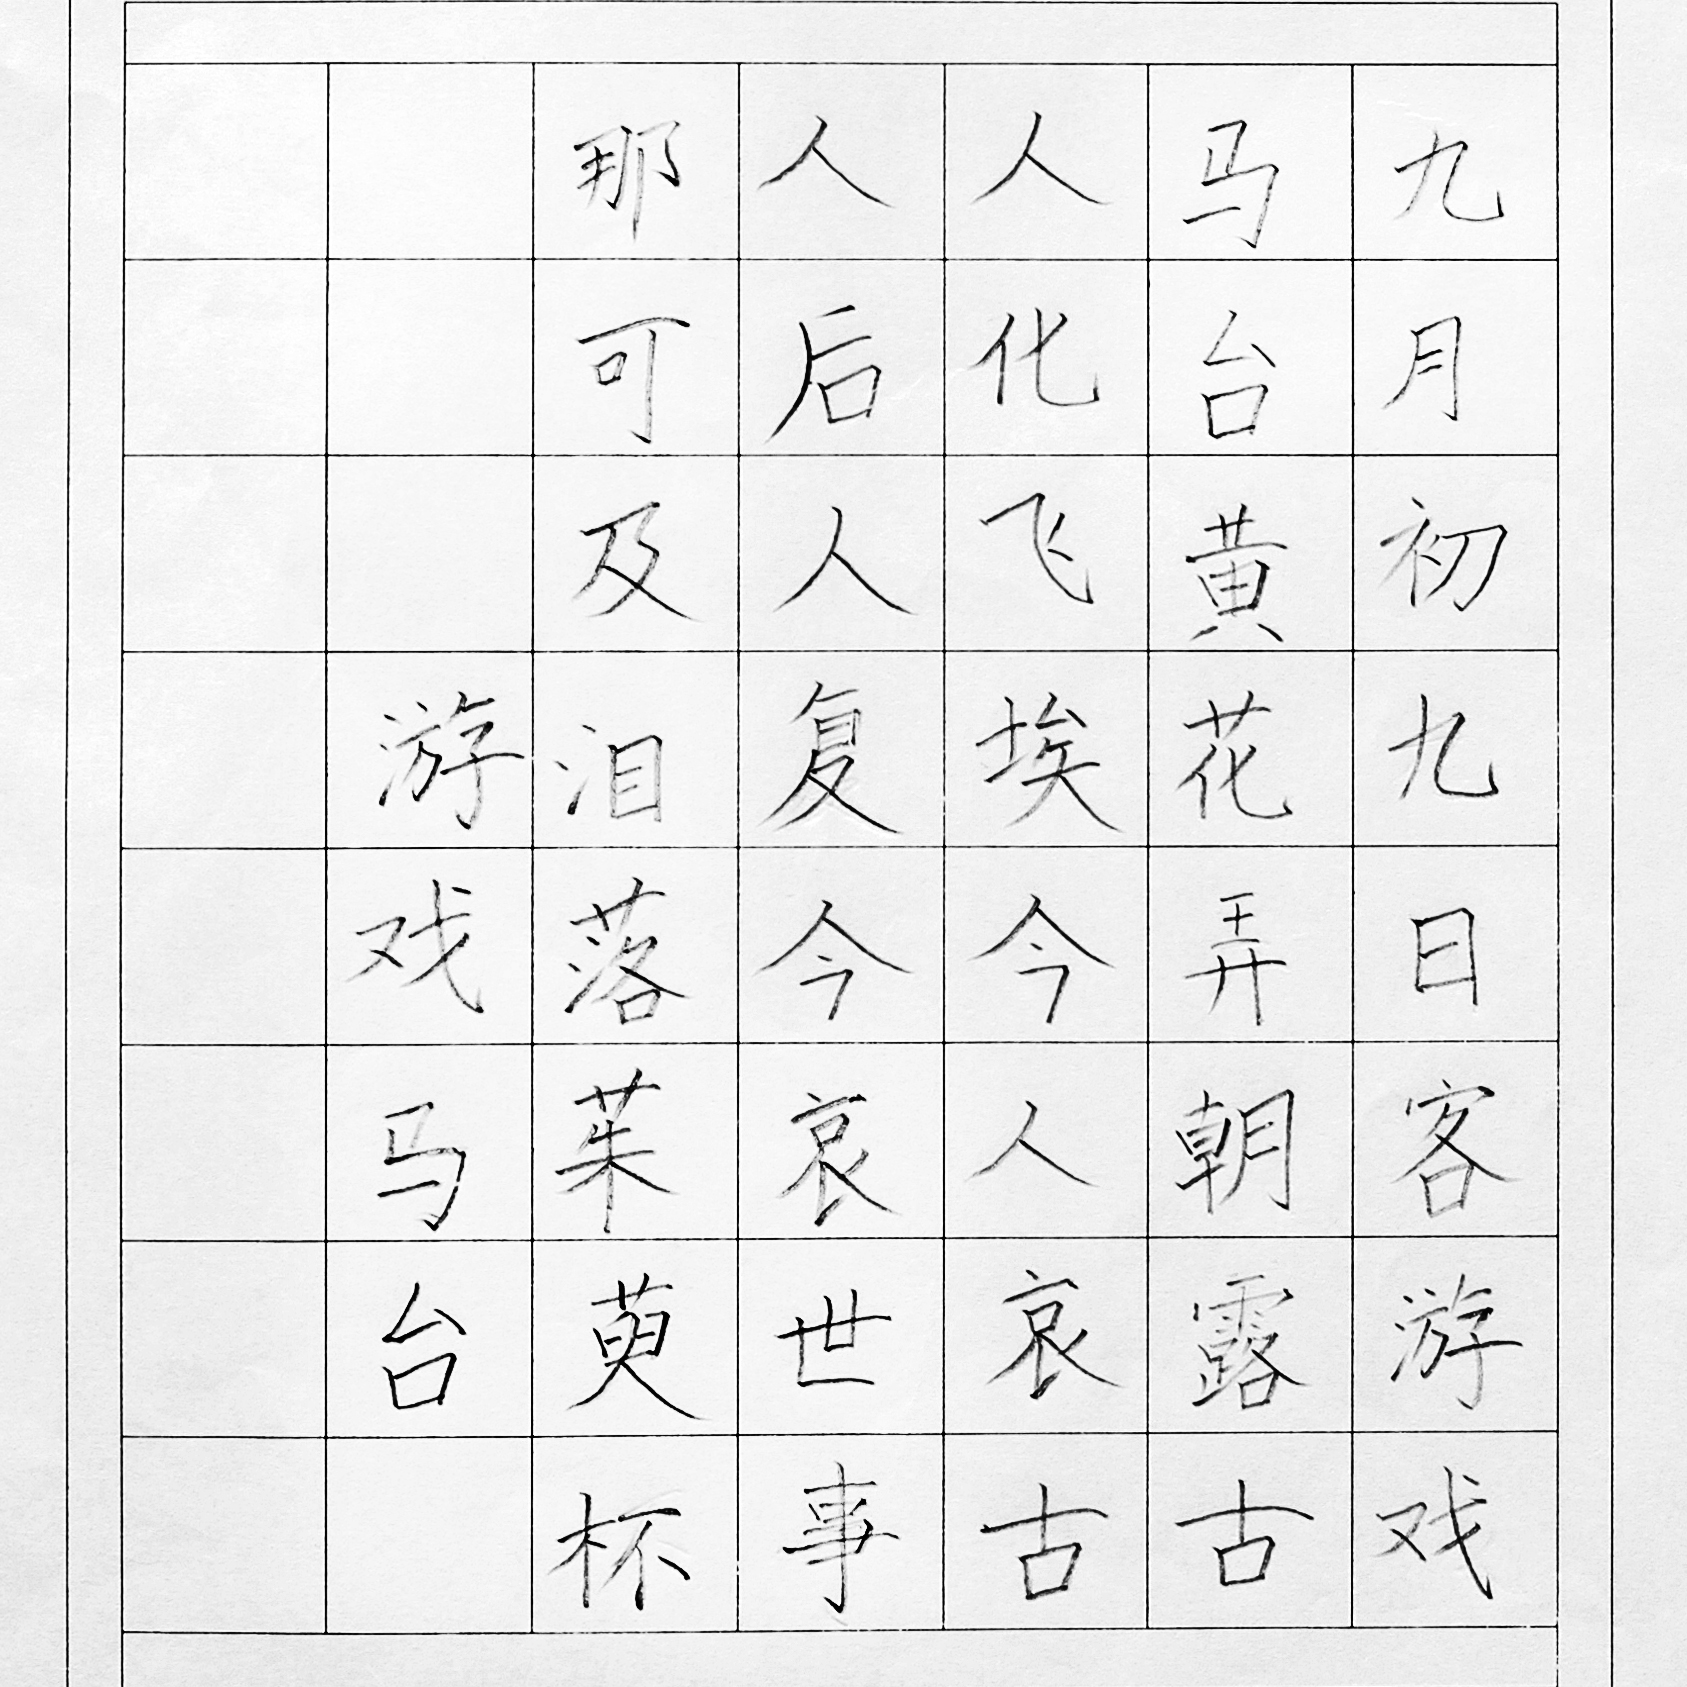 九月初九日客游戏
马台黄花弄朝露古
人化飞埃今人哀古
人后人复今哀世事
那可及泪落茱萸杯
游戏马台